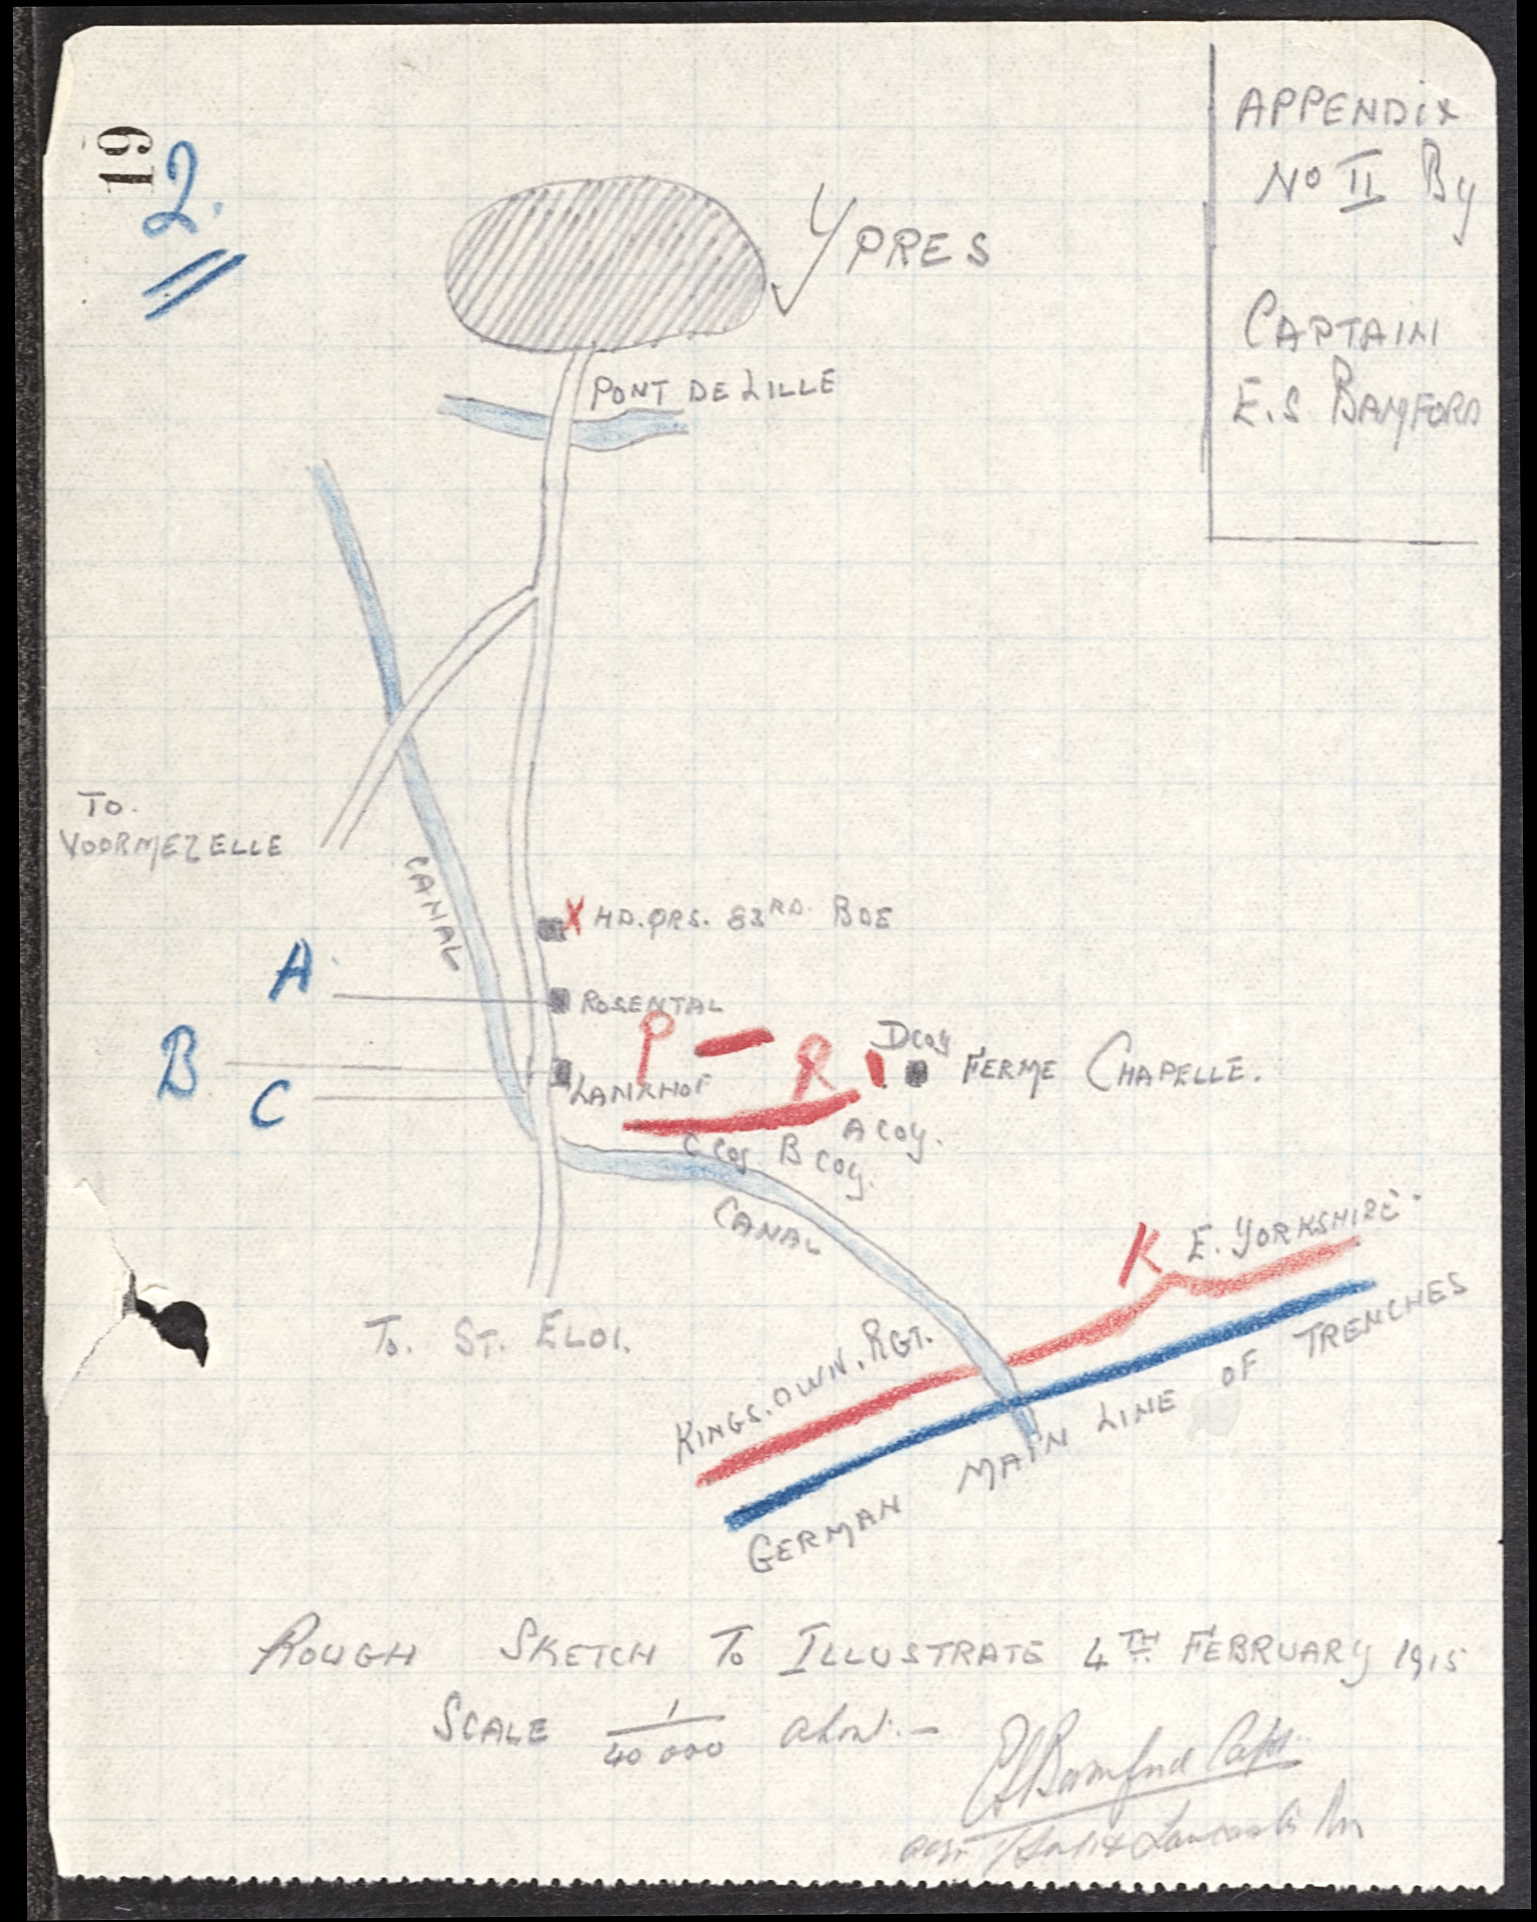 19
2.
APPENDIX
No II By
CAPTAIN
E.S BAMFORD
YPRES
PONT DE LILLE
TO.
VOORMEZELLE
CANAL
X HD.QRS. 83RD. BDE
A
ROSENTAL
P
R
D coy
FERME CHAPELLE.
B
LANKHOF
C
A coy.
C coy B coy.
CANAL
K E. YORKSHIRE.
TO. ST. ELOI.
KINGS. OWN. RGT.
GERMAN MAIN LINE OF TRENCHES
ROUGH SKETCH TO ILLUSTRATE 4TH FEBRUARY 1915
SCALE 1/40 000 about.-
ESBamford Capt.